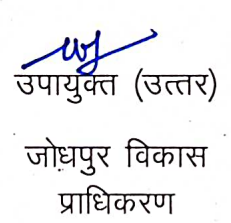 उपायुक्त (उत्तर)
जोधपुर विकास
प्राधिकरण